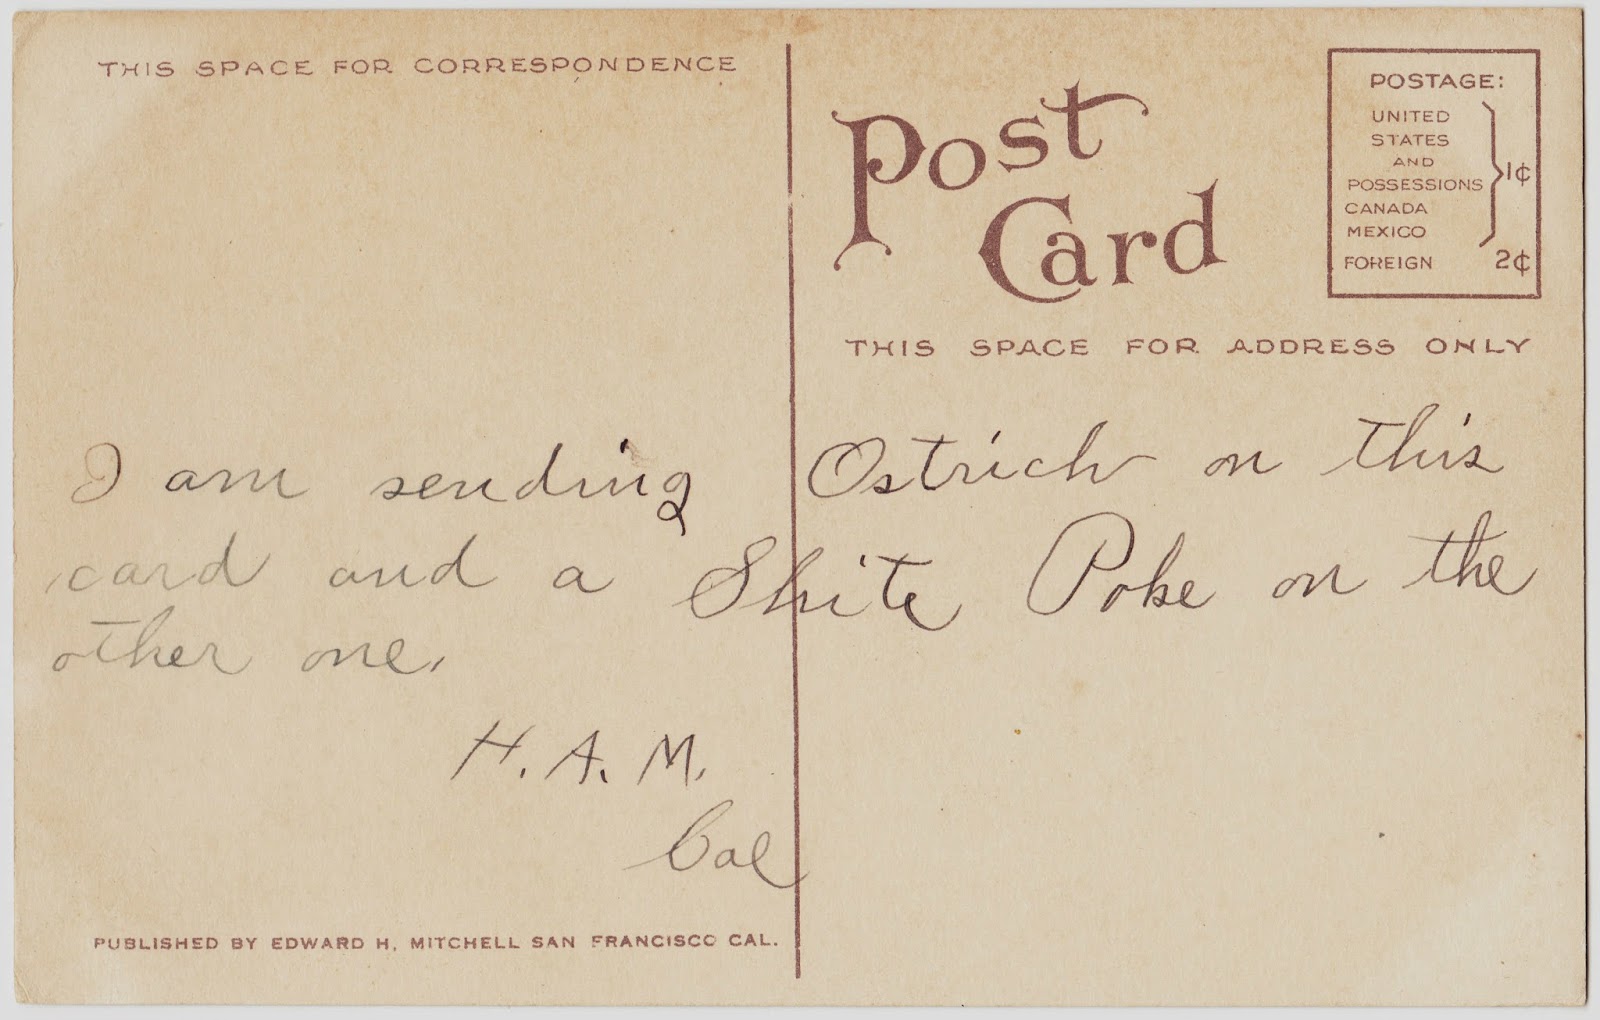 THIS SPACE FOR CORRESPONDENCE
Post
Card
POSTAGE:
UNITED
STATES
AND
POSSESSIONS
CANADA
MEXICO
1¢
FOREIGN 2¢
THIS SPACE FOR ADDRESS ONLY
I am sending Ostrich on this
card and a Shite Poke on the
other one.
H. A. M.
Cal
PUBLISHED BY EDWARD H. MITCHELL SAN FRANCISCO CAL.